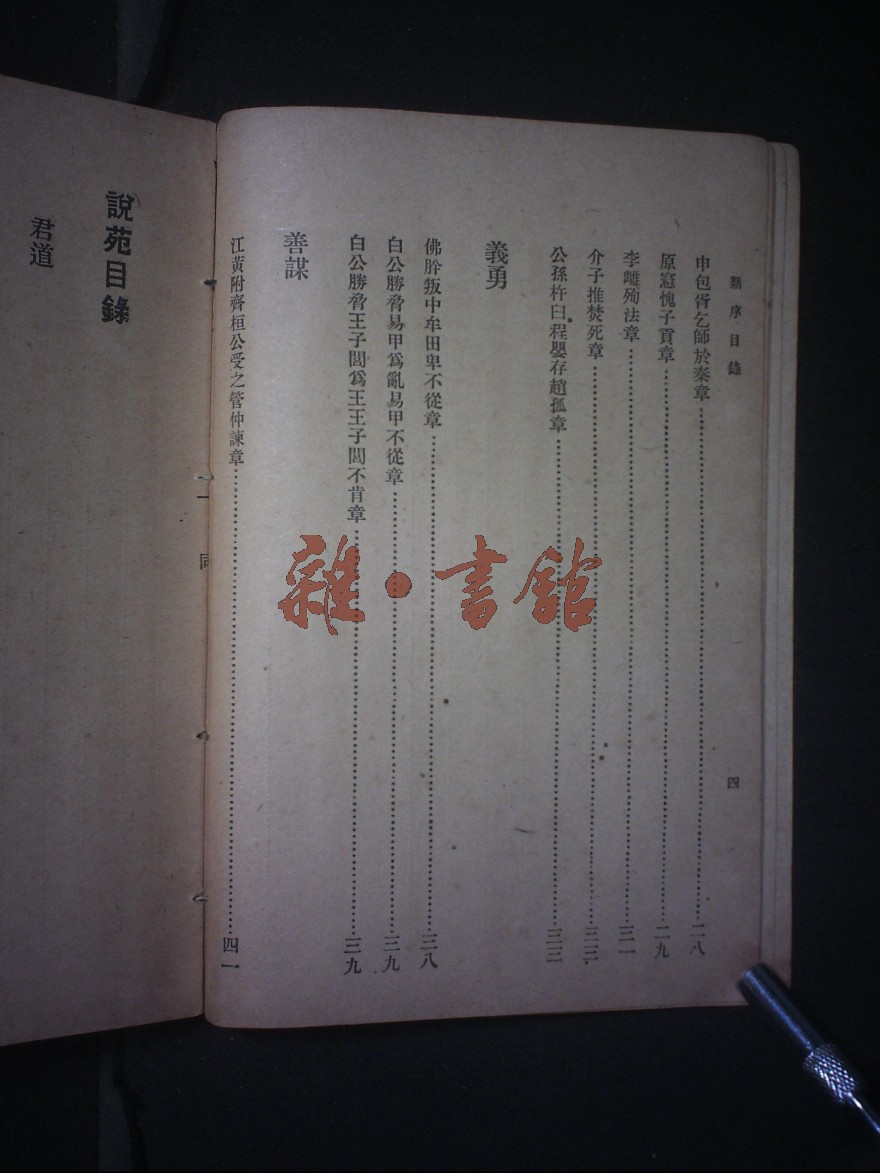 新序目錄
四
申包胥乞師於秦章……二八
原憲愧子貢章……二九
李離殉法章……三一
介子推焚死章……三二
公孫杵臼程嬰存趙孤章……三三
義勇
佛肸叛中牟田卑不從章……三八
白公勝脅易甲爲亂易甲不從章……三九
白公勝脅王子閭爲王王子閭不肯章……三九
善謀
江黃附齊桓公受之管仲諫章……四一
說苑目錄
君道
雜·書館